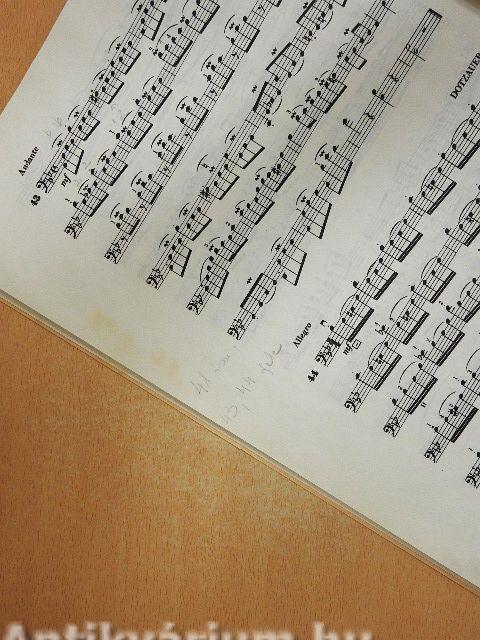 Andante
43
mf
DOTZAUER
Allegro
44
mf
43, 44
Antikvárium.hu